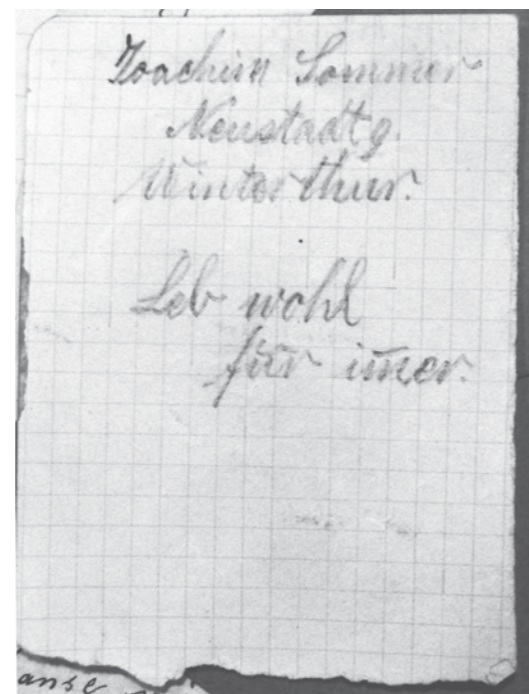 Joachim Sommer
Neustadtg.
Winterthur.
Leb wohl
für im̄er.
anse